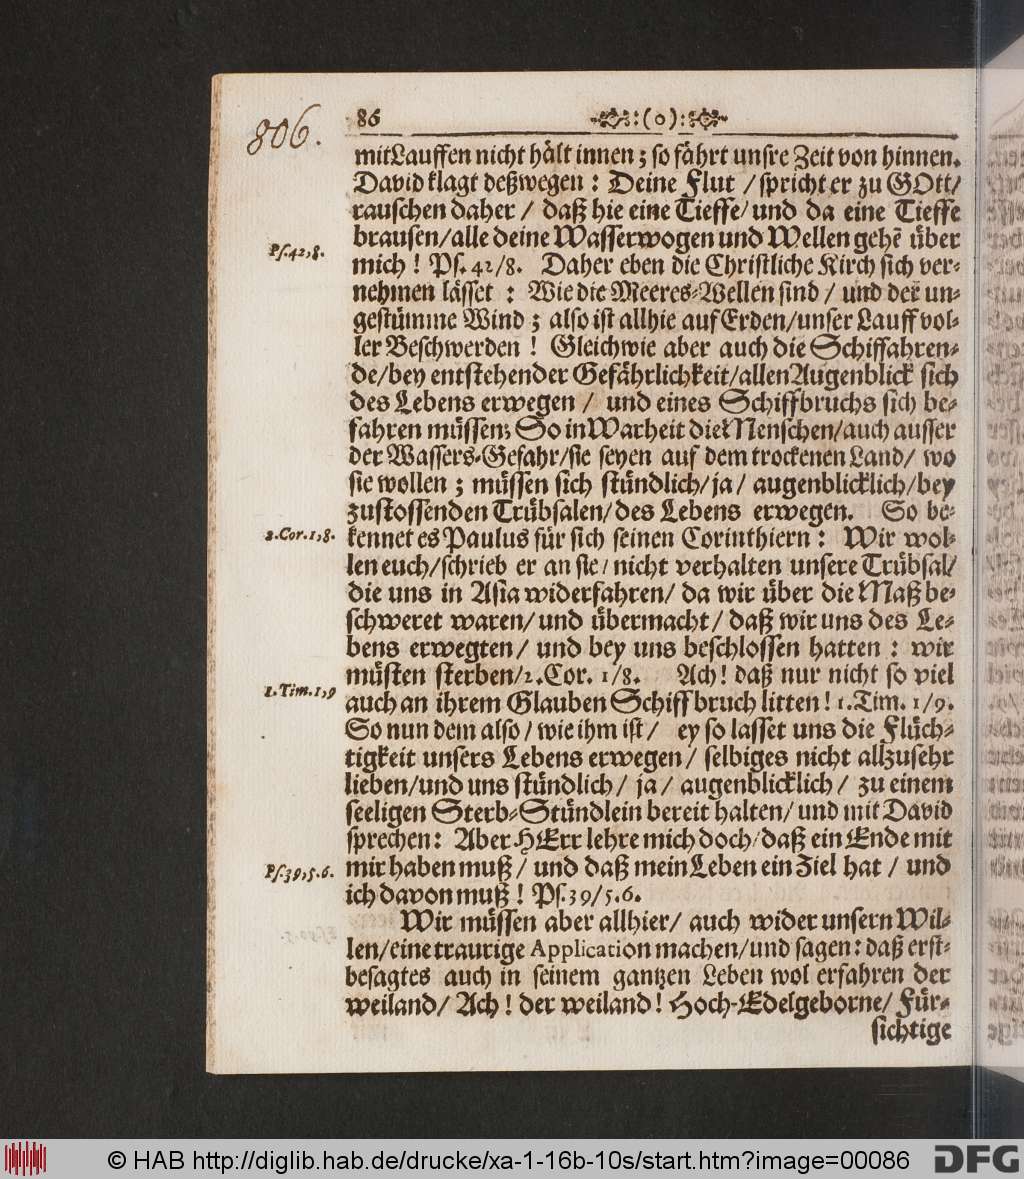 806.
86 :(o):
mit Lauffen nicht hält innen; so fährt unsre Zeit von hinnen.
David klagt deßwegen: Deine Flut / spricht er zu GOtt/
rauschen daher / daß hie eine Tieffe/ und da eine Tieffe
brausen/alle deine Wasserwogen und Wellen gehẽ über
Ps.42,8.
mich! Ps. 42/8. Daher eben die Christliche Kirch sich ver-
nehmen lässet : Wie die Meeres-Wellen sind / und der un-
gestümme Wind ; also ist allhie auf Erden/unser Lauff vol-
ler Beschwerden ! Gleichwie aber auch die Schiffahren-
de/bey entstehender Gefährlichkeit/allen Augenblick sich
des Lebens erwegen / und eines Schiffbruchs sich be-
fahren müssen; So in Warheit die Menschen/auch ausser
der Wassers-Gefahr/sie seyen auf dem trockenen Land/ wo
sie wollen ; müssen sich stündlich/ja/ augenblicklich/bey
zustossenden Trübsalen/des Lebens erwegen. So be-
2.Cor.1,8.
kennet es Paulus für sich seinen Corinthiern : Wir wol-
len euch/schrieb er an sie/ nicht verhalten unsere Trübsal/
die uns in Asia widerfahren/ da wir über die Maß be-
schweret waren/ und übermacht/ daß wir uns des Le-
bens erwegten/ und bey uns beschlossen hatten : wir
müsten sterben/2.Cor. 1/8. Ach! daß nur nicht so viel
1.Tim.1,9
auch an ihrem Glauben Schiffbruch litten! 1.Tim. 1/9.
So nun dem also / wie ihm ist/ ey so lasset uns die Flüch-
tigkeit unsers Lebens erwegen/ selbiges nicht allzusehr
lieben/und uns stündlich/ ja/ augenblicklich/ zu einem
seeligen Sterb-Stündlein bereit halten/ und mit David
sprechen: Aber HErr lehre mich doch/daß ein Ende mit
Ps.39,5.6.
mir haben muß/ und daß mein Leben ein Ziel hat / und
ich davon muß! Ps.39/5.6.
Wir müssen aber allhier/ auch wider unsern Wil-
len/eine traurige Application machen/und sagen: daß erst-
besagtes auch in seinem gantzen Leben wol erfahren der
weiland/ Ach! der weiland! Hoch-Edelgeborne/ Für-
sichtige
© HAB http://diglib.hab.de/drucke/xa-1-16b-10s/start.htm?image=00086
DFG